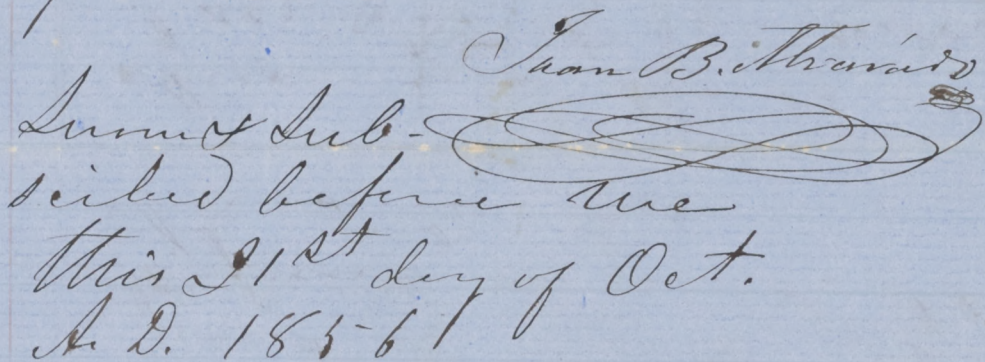 Juan B. Alvarado
Sworn & Sub-
scribed before me
this 21st day of Oct.
A. D. 1856